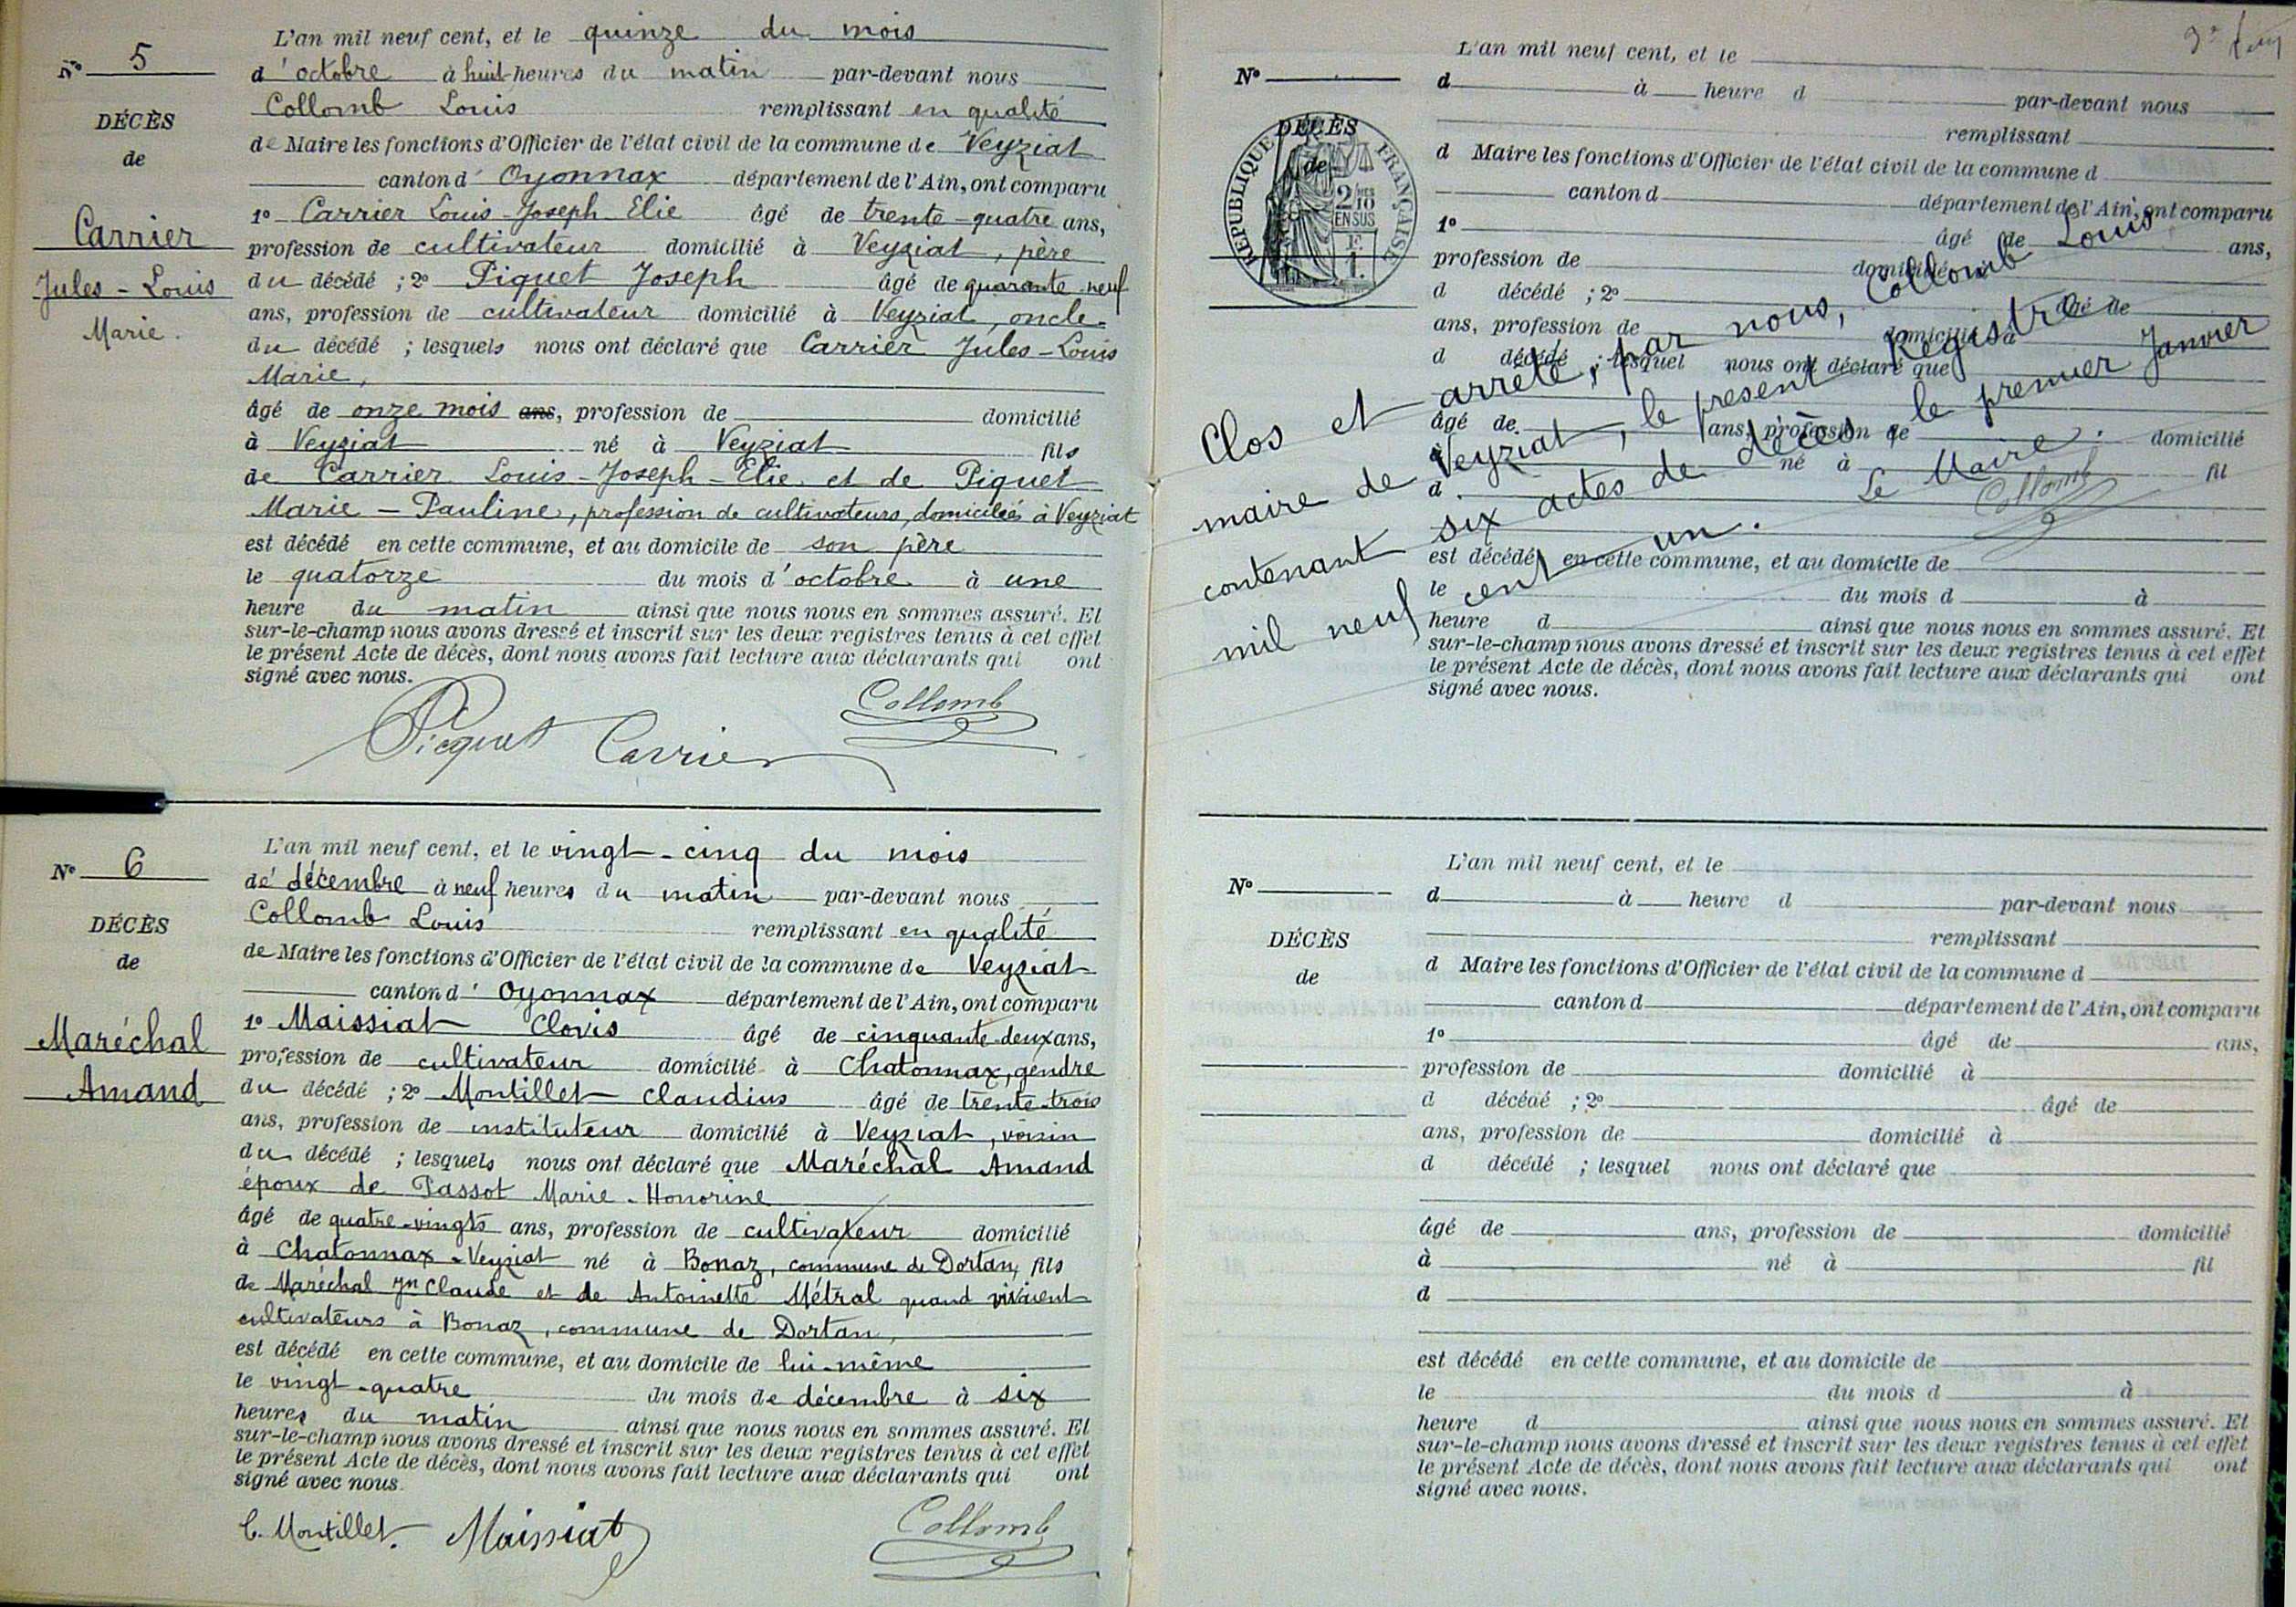 N° 5
DÉCÈS
de
Carrier
Jules - Louis
Marie.
L'an mil neuf cent, et le quinze du mois
d'octobre à huit heures du matin par-devant nous
Collomb Louis remplissant en qualité
de Maire les fonctions d'Officier de l'état civil de la commune de Veyziat
canton d'Oyonnax département de l'Ain, ont comparu
1° Carrier Louis-Joseph-Elie âgé de trente-quatre ans,
profession de cultivateur domicilié à Veyziat, père
du décédé ; 2° Piquet Joseph âgé de quarante neuf
ans, profession de cultivateur domicilié à Veyziat, oncle
du décédé ; lesquels nous ont déclaré que Carrier Jules-Louis
Marie,
âgé de onze mois ans, profession de domicilié
à Veyziat né à Veyziat fils
de Carrier Louis-Joseph-Elie et de Piquet
Marie-Pauline, profession de cultivateurs, domiciliés à Veyziat
est décédé en cette commune, et au domicile de son père
le quatorze du mois d'octobre à une
heure du matin ainsi que nous nous en sommes assuré. Et
sur-le-champ nous avons dressé et inscrit sur les deux registres tenus à cet effet
le présent Acte de décès, dont nous avons fait lecture aux déclarants qui ont
signé avec nous.
Picquet Carrier Collomb
N° 6
DÉCÈS
de
Maréchal
Amand
L'an mil neuf cent, et le vingt-cinq du mois
de décembre à neuf heures du matin par-devant nous
Collomb Louis remplissant en qualité
de Maire les fonctions d'Officier de l'état civil de la commune de Veyziat
canton d'Oyonnax département de l'Ain, ont comparu
1° Maissiat Clovis âgé de cinquante-deux ans,
profession de cultivateur domicilié à Chatonnax, gendre
du décédé ; 2° Montillet Claudius âgé de trente-trois
ans, profession de instituteur domicilié à Veyziat, voisin
du décédé ; lesquels nous ont déclaré que Maréchal Amand
époux de Passot Marie-Honorine
âgé de quatre-vingts ans, profession de cultivateur domicilié
à Chatonnax-Veyziat né à Bonaz, commune de Dortan, fils
de Maréchal Jn Claude et de Antoinette Métral quand vivaient
cultivateurs à Bonaz, commune de Dortan,
est décédé en cette commune, et au domicile de lui-même
le vingt-quatre du mois de décembre à six
heures du matin ainsi que nous nous en sommes assuré. Et
sur-le-champ nous avons dressé et inscrit sur les deux registres tenus à cet effet
le présent Acte de décès, dont nous avons fait lecture aux déclarants qui ont
signé avec nous.
C. Montillet. Maissiat Collomb
N°
DÉCÈS
de
RÉPUBLIQUE FRANÇAISE
2/10 MES
EN SUS
F.
1.
L'an mil neuf cent, et le
d à heure d par-devant nous
remplissant
d Maire les fonctions d'Officier de l'état civil de la commune d
canton d département de l'Ain, ont comparu
1° âgé de ans,
profession de domicilié à
d décédé ; 2° âgé de
ans, profession de domicilié à
d décédé ; lesquel nous ont déclaré que
âgé de ans, profession de domicilié
à né à fil
d
est décédé en cette commune, et au domicile de
le du mois d à
heure d ainsi que nous nous en sommes assuré. Et
sur-le-champ nous avons dressé et inscrit sur les deux registres tenus à cet effet
le présent Acte de décès, dont nous avons fait lecture aux déclarants qui ont
signé avec nous.
Clos et arrêté, par nous, Collomb Louis
maire de Veyziat, le présent Registre
contenant six actes de décès, le premier Janvier
mil neuf cent un.
Le Maire.
Collomb
N°
DÉCÈS
de
L'an mil neuf cent, et le
d à heure d par-devant nous
remplissant
d Maire les fonctions d'Officier de l'état civil de la commune d
canton d département de l'Ain, ont comparu
1° âgé de ans,
profession de domicilié à
d décédé ; 2° âgé de
ans, profession de domicilié à
d décédé ; lesquel nous ont déclaré que
âgé de ans, profession de domicilié
à né à fil
d
est décédé en cette commune, et au domicile de
le du mois d à
heure d ainsi que nous nous en sommes assuré. Et
sur-le-champ nous avons dressé et inscrit sur les deux registres tenus à cet effet
le présent Acte de décès, dont nous avons fait lecture aux déclarants qui ont
signé avec nous.